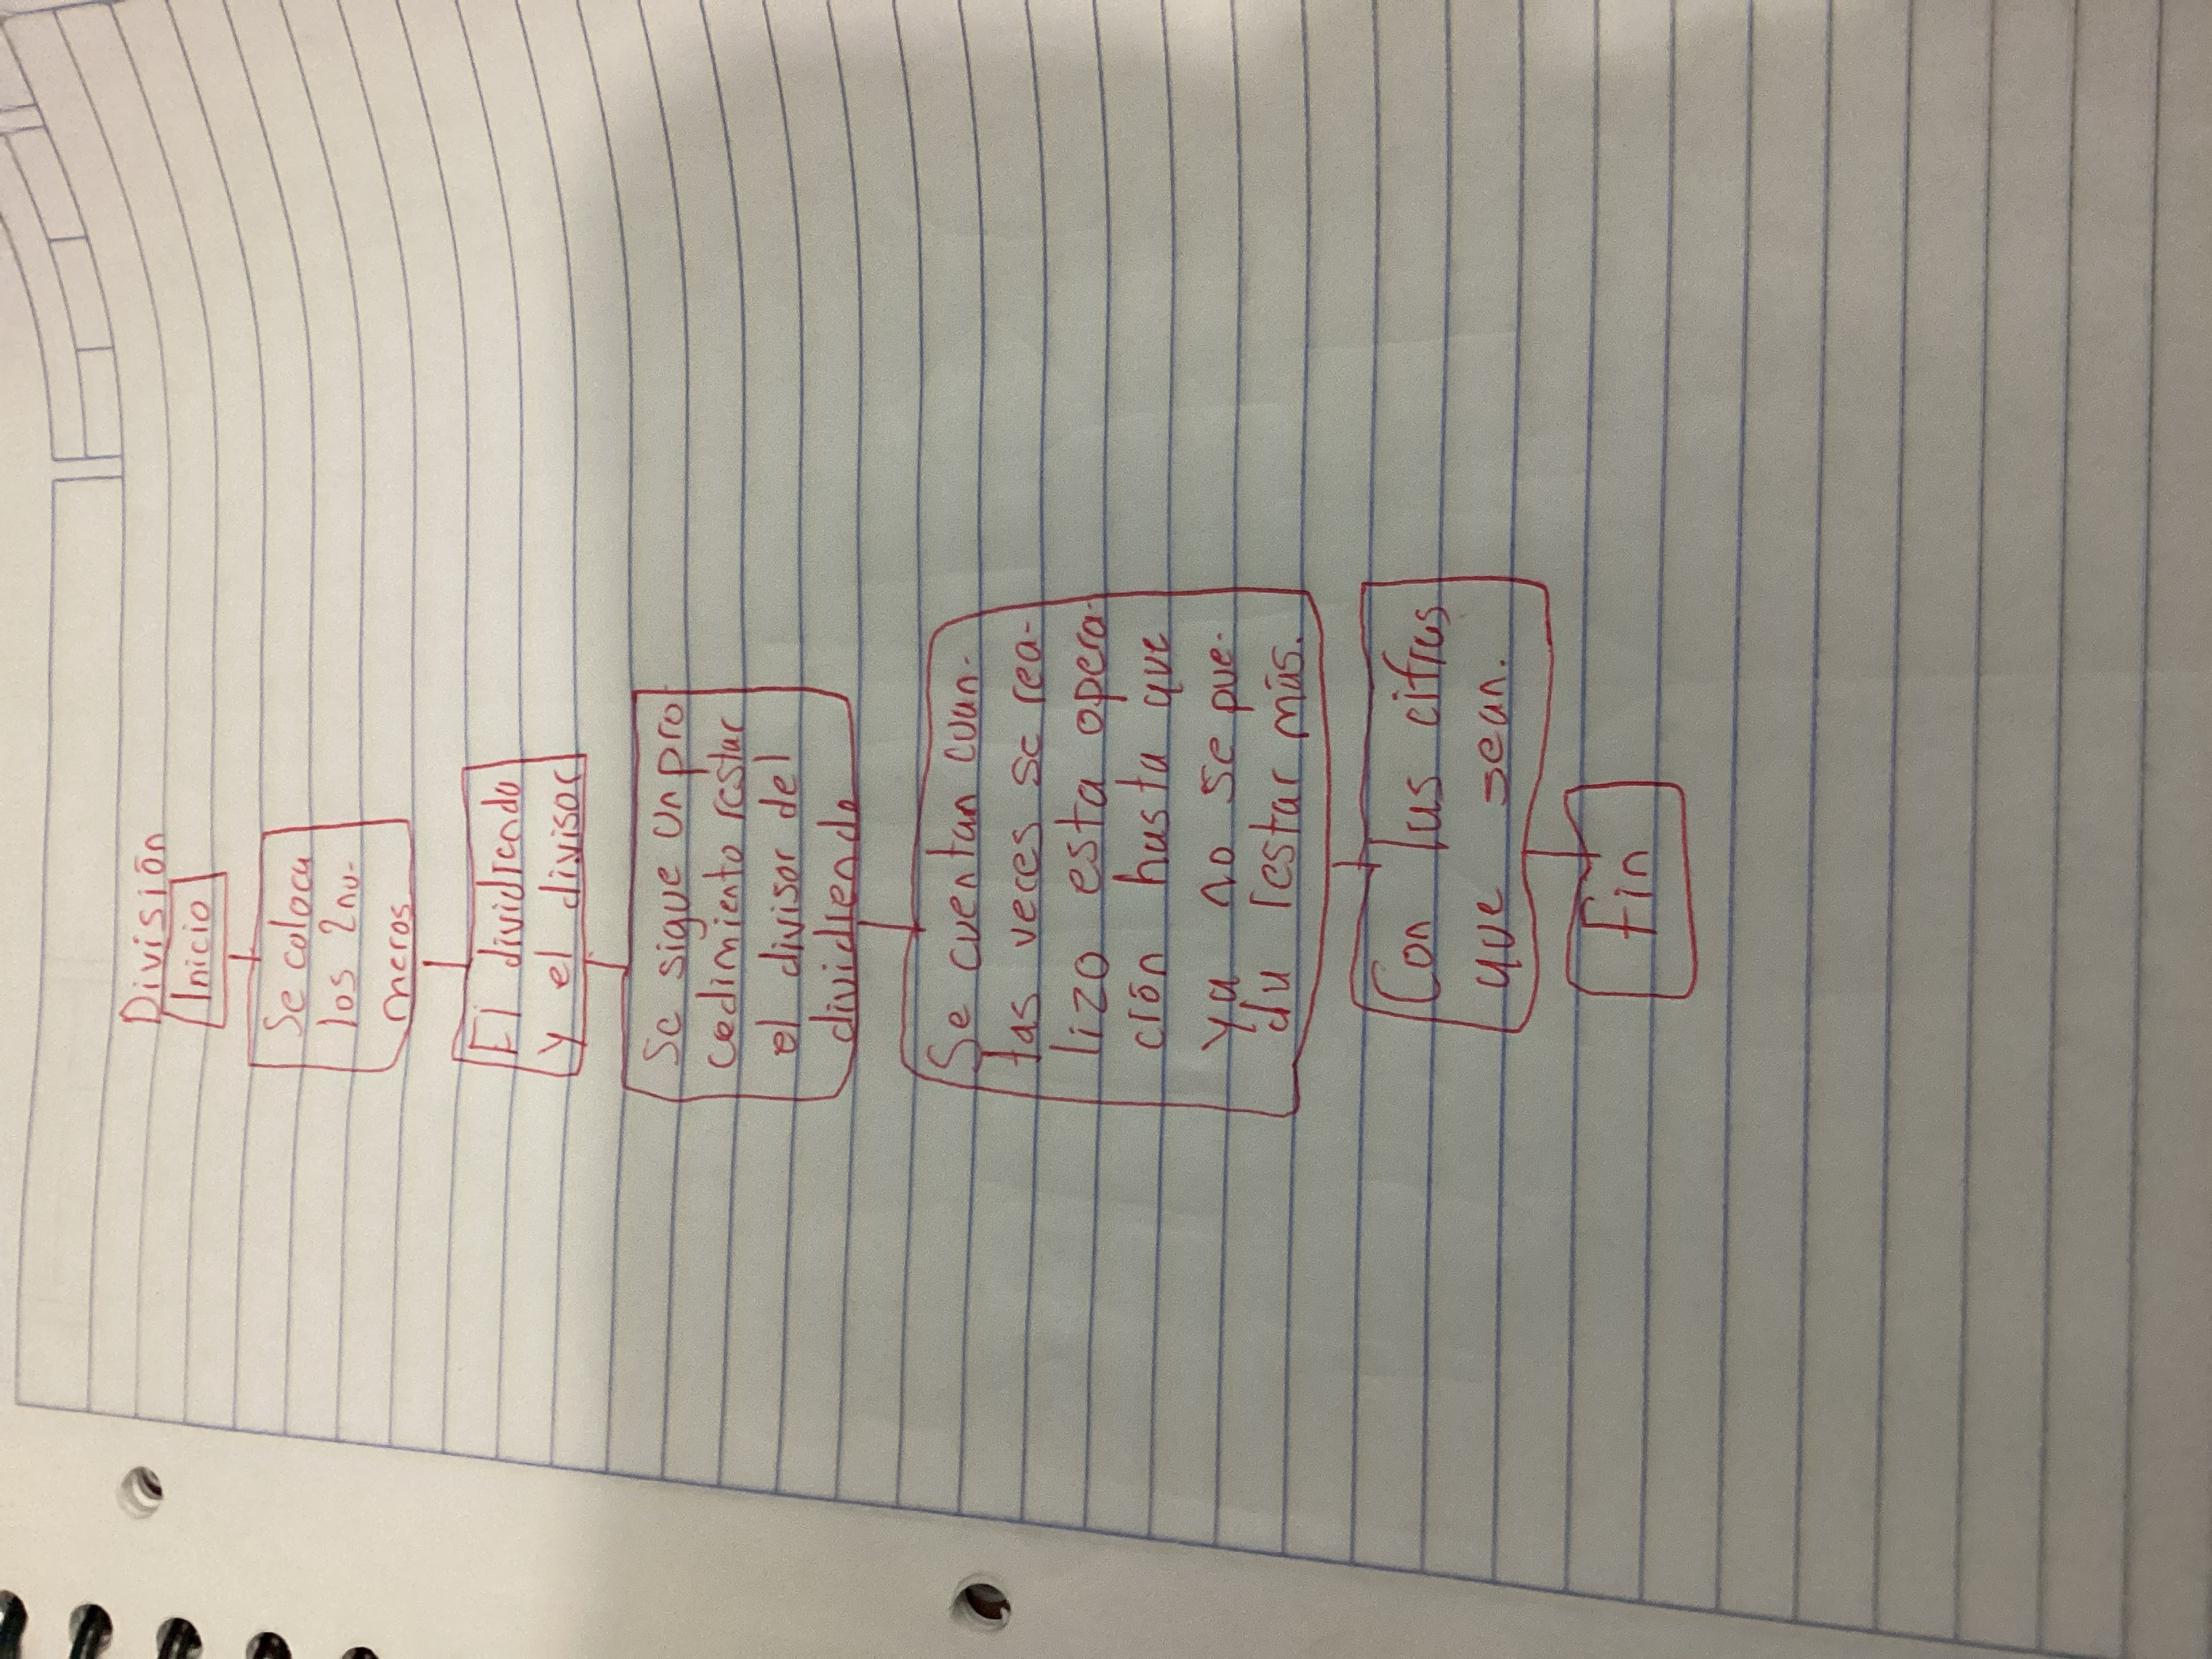 División
Inicio
Se coloca
los 2 nu-
meros
El dividendo
y el divisor
Se sigue un pro
cedimiento restar
el divisor del
dividiendo
Se cuentan cuan-
tas veces se rea-
lizo esta opera-
ción hasta que
ya no se pue-
da restar más.
Con las cifras
que sean.
Fin